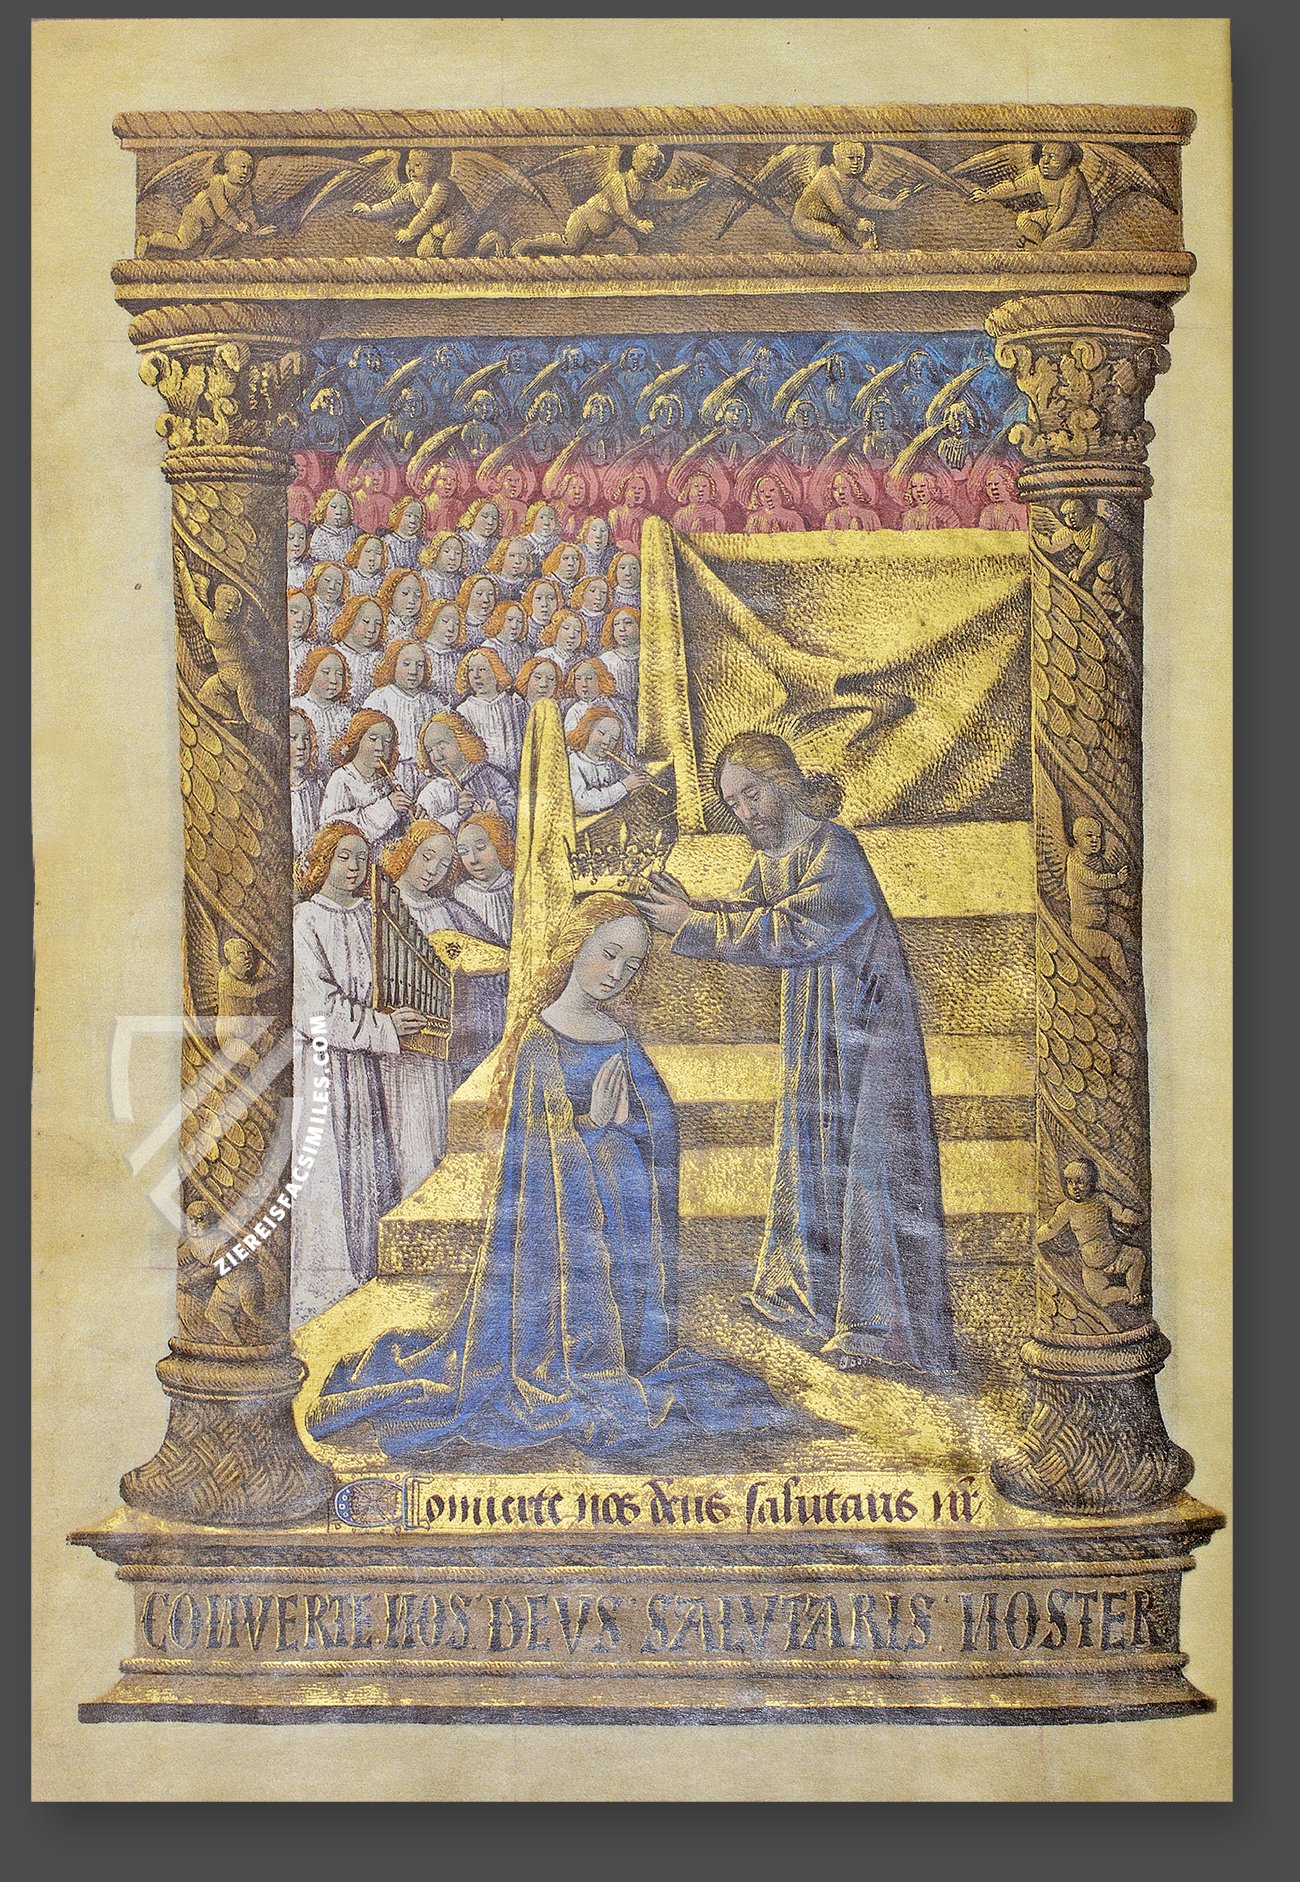 ZIEREISFACSIMILES.COM
Conuerte nos deus salutaris nr
CONVERTE NOS DEVS SALVTARIS NOSTER